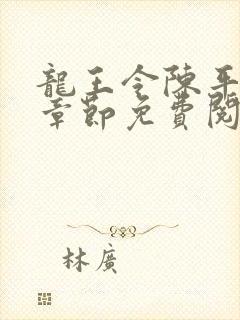 龍王令陳平
章節免費閱
林廣